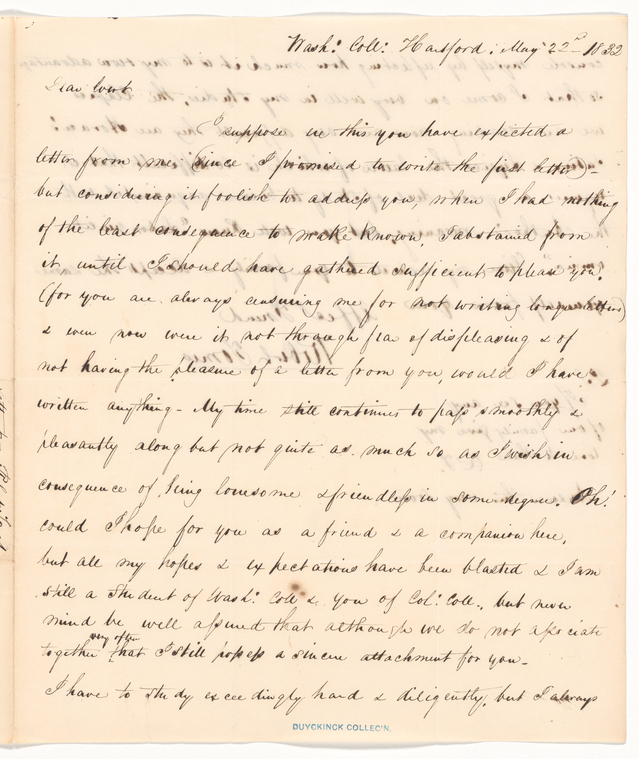 Wash: Coll: Hartford: May 22d 1832
Dear Evert
I suppose ere this you have expected a
letter from me (since I promised to write the first letter) -
but considering it foolish to address you, when I had nothing
of the least consequence to make known, I abstained from
it, until I should have gathered sufficient to please you,
(for you are always censuring me for not writing long letters)
& even now were it not through fear of displeasing & of
not having the pleasure of a letter from you, would I have
written anything - My time still continues to pass smoothly &
pleasantly along but not quite as much so as I wish in
consequence of being lonesome & friendless in some degree. Oh!
could I hope for you as a friend & a companion here,
but all my hopes & expectations have been blasted & I am
still a Student of Wash: Coll & you of Col: Coll., but never
mind be well assured that although we do not associate
very often
together that I still possess a sincere attachment for you -
I have to study exceedingly hard & diligently, but I always
DUYCKINCK COLLEC'N.